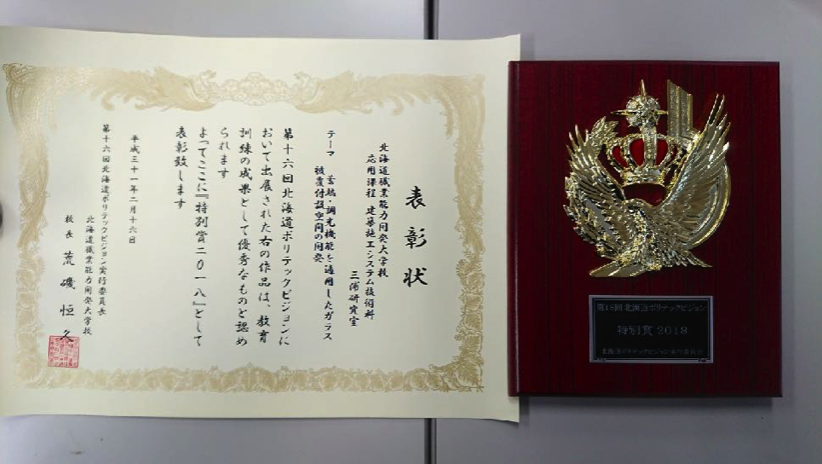 表彰状
北海道職業能力開発大学校
応用課程 建築施工システム技術科
三浦研究室
テーマ 蓄熱・調光機能を適用したガラス
被覆付設空間の開発
第十六回北海道ポリテックビジョンに
おいて出展された右の作品は、教育
訓練の成果として優秀なものと認め
られます
よってここに『特別賞二〇一八』として
表彰致します
平成三十一年二月十六日
第十六回北海道ポリテックビジョン実行委員長
北海道職業能力開発大学校
校長 荒磯恒久
第16回 北海道ポリテックビジョン
特別賞 2018
北海道ポリテックビジョン実行委員会